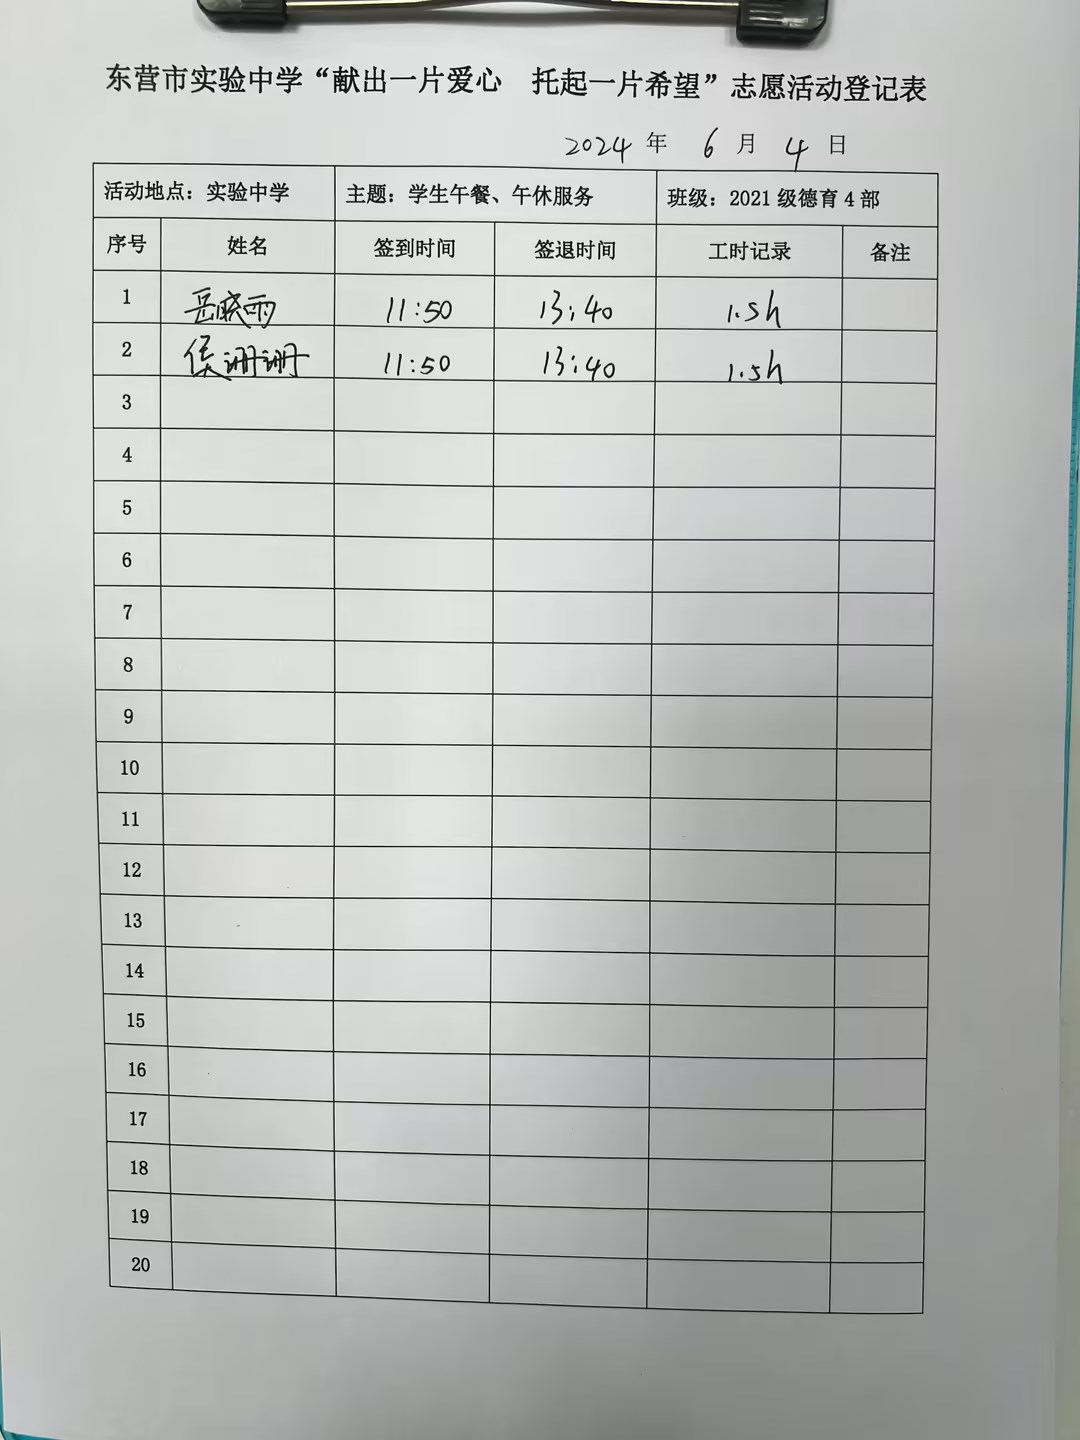 东营市实验中学“献出一片爱心 托起一片希望”志愿活动登记表
2024 年 6 月 4 日
活动地点：实验中学 主题：学生午餐、午休服务 班级：2021 级德育 4 部
序号 姓名 签到时间 签退时间 工时记录 备注
1 岳晓雨 11:50 13:40 1.5h
2 侯珊珊 11:50 13:40 1.5h
3
4
5
6
7
8
9
10
11
12
13
14
15
16
17
18
19
20